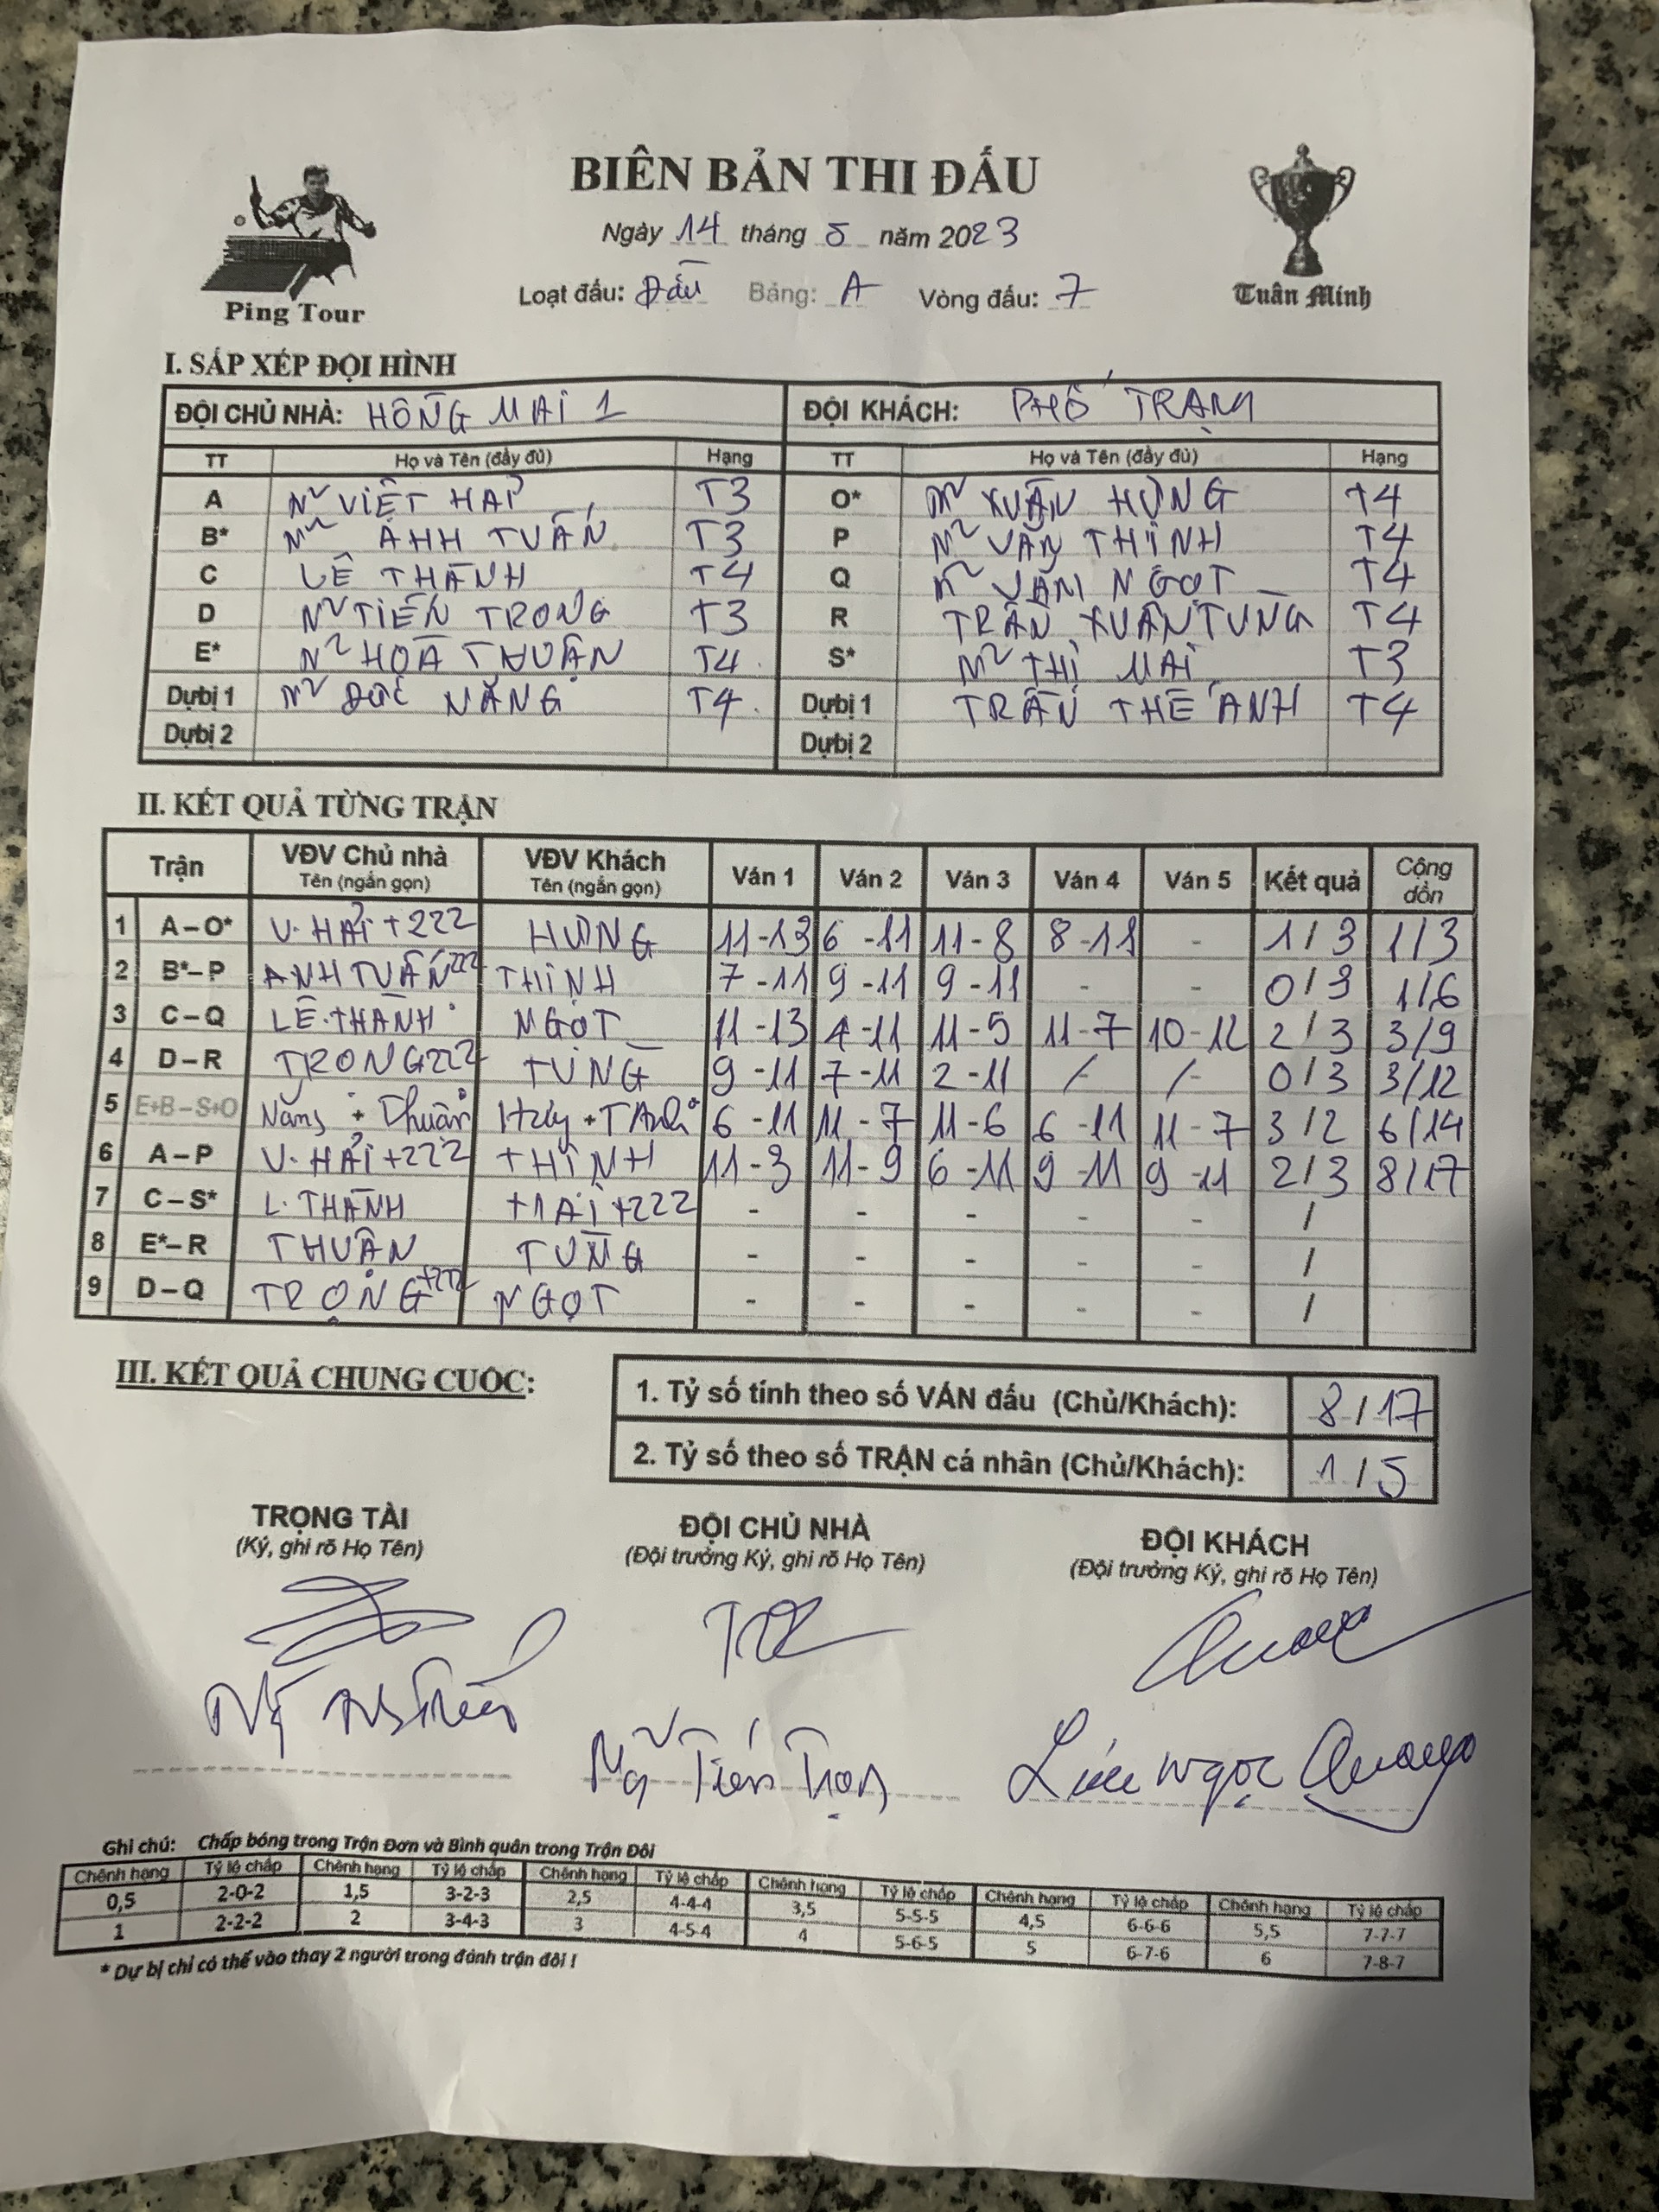 BIÊN BẢN THI ĐẤU
Ngày 14 tháng 5 năm 2023
Loạt đấu: Đấu Bảng: A Vòng đấu: 7
Ping Tour
Tuấn Minh
I. SẮP XẾP ĐỘI HÌNH
ĐỘI CHỦ NHÀ: HỒNG MAI 1 ĐỘI KHÁCH: PHỐ TRẠM
TT Họ và Tên (đầy đủ) Hạng TT Họ và Tên (đầy đủ) Hạng
A VIỆT HẢI T3 O* XUÂN HÙNG T4
B* ANH TUẤN T3 P VĂN THỊNH T4
C LÊ THÀNH T4 Q VĂN NGỌT T4
D TIẾN TRỌNG T3 R TRẦN XUÂN TÙNG T4
E* HOÀ THUẬN T4 S* THỊ MAI T3
Dự bị 1 ĐỨC NĂNG T4 Dự bị 1 TRẦN THẾ ANH T4
Dự bị 2 Dự bị 2
II. KẾT QUẢ TỪNG TRẬN
Trận VĐV Chủ nhà Tên (ngắn gọn) VĐV Khách Tên (ngắn gọn) Ván 1 Ván 2 Ván 3 Ván 4 Ván 5 Kết quả Cộng dồn
1 A – O* V. HẢI +222 HÙNG 11-13 6-11 11-8 8-11 - 1/3 1/3
2 B* – P ANH TUẤN 222 THỊNH 7-11 9-11 9-11 - - 0/3 1/6
3 C – Q LÊ THÀNH NGỌT 11-13 4-11 11-5 11-7 10-12 2/3 3/9
4 D – R TRỌNG 222 TÙNG 9-11 7-11 2-11 - - 0/3 3/12
5 E+B – S+O Năng + Thuận + 6-11 11-7 11-6 6-11 11-7 3/2 6/14
6 A – P V. HẢI +222 THỊNH 11-3 11-9 6-11 9-11 9-11 2/3 8/17
7 C – S* L. THÀNH MAI +222 - - - - - /
8 E* – R THUẬN TÙNG - - - - - /
9 D – Q TRỌNG +222 NGỌT - - - - - /
III. KẾT QUẢ CHUNG CUỘC:
1. Tỷ số tính theo số VÁN đấu (Chủ/Khách): 8/17
2. Tỷ số theo số TRẬN cá nhân (Chủ/Khách): 1/5
TRỌNG TÀI ĐỘI CHỦ NHÀ ĐỘI KHÁCH
(Ký, ghi rõ Họ Tên) (Đội trưởng Ký, ghi rõ Họ Tên) (Đội trưởng Ký, ghi rõ Họ Tên)
Tiến Trọng Ngọc Quang
Ghi chú: Chấp bóng trong Trận Đơn và Bình quân trong Trận Đôi
Chênh hạng Tỷ lệ chấp Chênh hạng Tỷ lệ chấp Chênh hạng Tỷ lệ chấp Chênh hạng Tỷ lệ chấp Chênh hạng Tỷ lệ chấp Chênh hạng Tỷ lệ chấp
0,5 2-0-2 1,5 3-2-3 2,5 4-4-4 3,5 5-5-5 4,5 6-6-6 5,5 7-7-7
1 2-2-2 2 3-4-3 3 4-5-4 4 5-6-5 5 6-7-6 6 7-8-7
* Dự bị chỉ có thể vào thay 2 người trong đánh trận đôi !